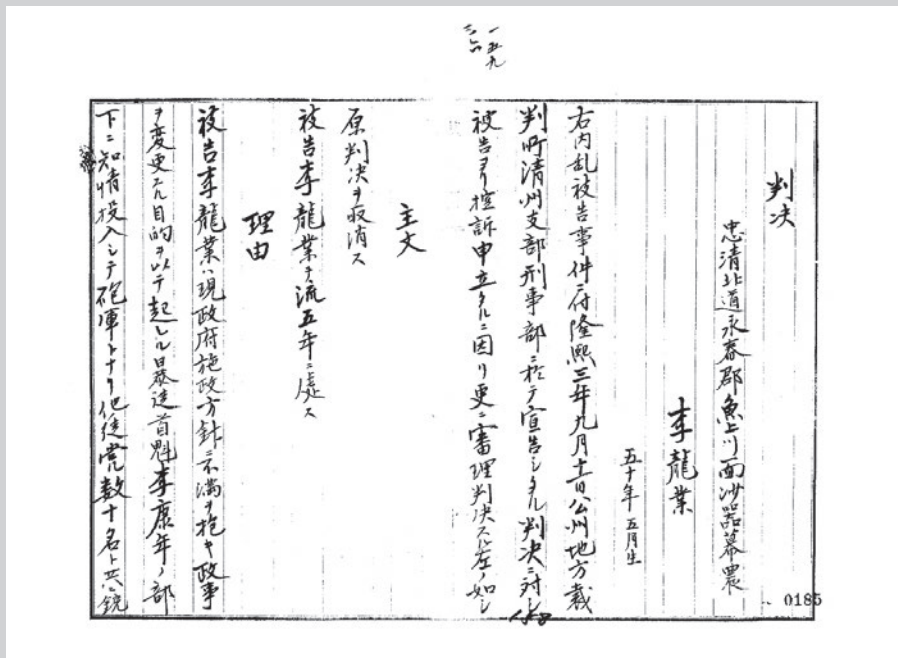 一五九
判决
忠清北道永春郡魚上川面沙器幕農
李龍業
五十年五月生
右内乱被告事件ニ付隆熙三年九月十一日公州地方裁
判所清州支部刑事部ニ於テ宣告シタル判决ニ対シ
被告ヨリ控訴申立タルニ因リ更ニ審理判决スル左ノ如シ
主文
原判决ヲ取消ス
被告李龍業ヲ流五年ニ處ス
理由
被告李龍業ハ現政府施政方針ニ不満ヲ抱キ政事
ヲ変更スル目的ヲ以テ起レル暴徒首魁李康年ノ部
下ニ知情投入シテ砲軍トナリ他徒党数十名ト共ニ銃
0185